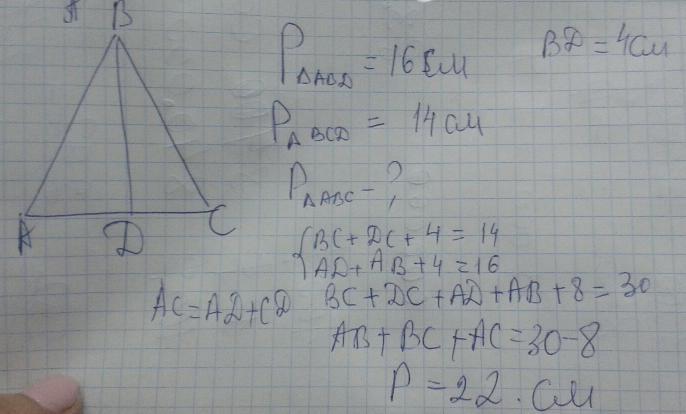 B
A
D
C
P ΔABD = 16 см
BD = 4 см
P Δ BCD = 14 см
P ΔABC - ?
{ BC + DC + 4 = 14
AD + AB + 4 = 16
AC = AD + CD
BC + DC + AD + AB + 8 = 30
AB + BC + AC = 30 - 8
P = 22 . см